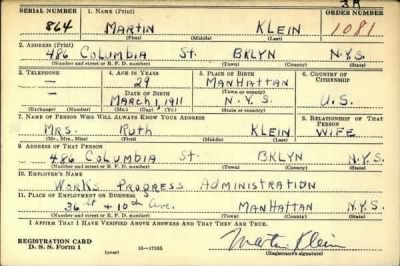 3A
SERIAL NUMBER 1. NAME (Print) ORDER NUMBER
864 MARTIN KLEIN 1081
(First) (Middle) (Last)
2. ADDRESS (Print)
486 COLUMBIA St. BKLYN N.Y.S.
(Number and street or R. F. D. number) (Town) (County) (State)
3. TELEPHONE 4. AGE IN YEARS 5. PLACE OF BIRTH 6. COUNTRY OF CITIZENSHIP
— 29 MANHATTAN
DATE OF BIRTH (Town or county)
— MARCH 1, 1911 N.Y.S. U.S.
(Exchange) (Number) (Mo.) (Day) (Yr.) (State or country)
7. NAME OF PERSON WHO WILL ALWAYS KNOW YOUR ADDRESS 8. RELATIONSHIP OF THAT PERSON
MRS. RUTH KLEIN WIFE
(Mr., Mrs., Miss) (First) (Middle) (Last)
9. ADDRESS OF THAT PERSON
486 COLUMBIA St. BKLYN N.Y.S.
(Number and street or R. F. D. number) (Town) (County) (State)
10. EMPLOYER'S NAME
WORKS PROGRESS ADMINISTRATION
11. PLACE OF EMPLOYMENT OR BUSINESS
36 St + 10th Ave. MANHATTAN N.Y.S.
(Number and street or R. F. D. number) (Town) (County) (State)
I AFFIRM THAT I HAVE VERIFIED ABOVE ANSWERS AND THAT THEY ARE TRUE.
REGISTRATION CARD
D. S. S. Form 1 (over) 16—17105
Martin Klein
(Registrant's signature)